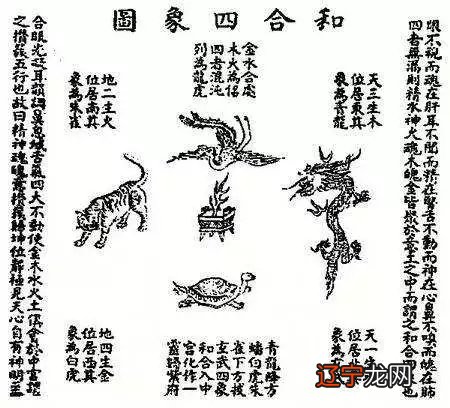 和合四象圖
眼不視而魂在肝耳不聞而精在腎舌不動而神在心鼻不嗅而魄在肺
四者無漏則精水神火魂木魄金皆聚於意土之中而謂之和合四象也
天三生木
位居東其
象為青龍
金水合處
木火為侶
四者混沌
列為龍虎
地二生火
位居南其
象為朱雀
天一生
位居北
象為
青龍降方
蟠伯虎朱
雀下方
玄武四象
和合入中
宮化作一
靈歸紫府
地四生金
位居西其
象為白虎
合眼光凝耳韻調鼻息緘舌氣四大不動使金木水火土俱會於中宮謂
之攢簇五行也故曰精神魂魄意攢簇歸坤位靜極見天心自有神明至
辽宁龙网